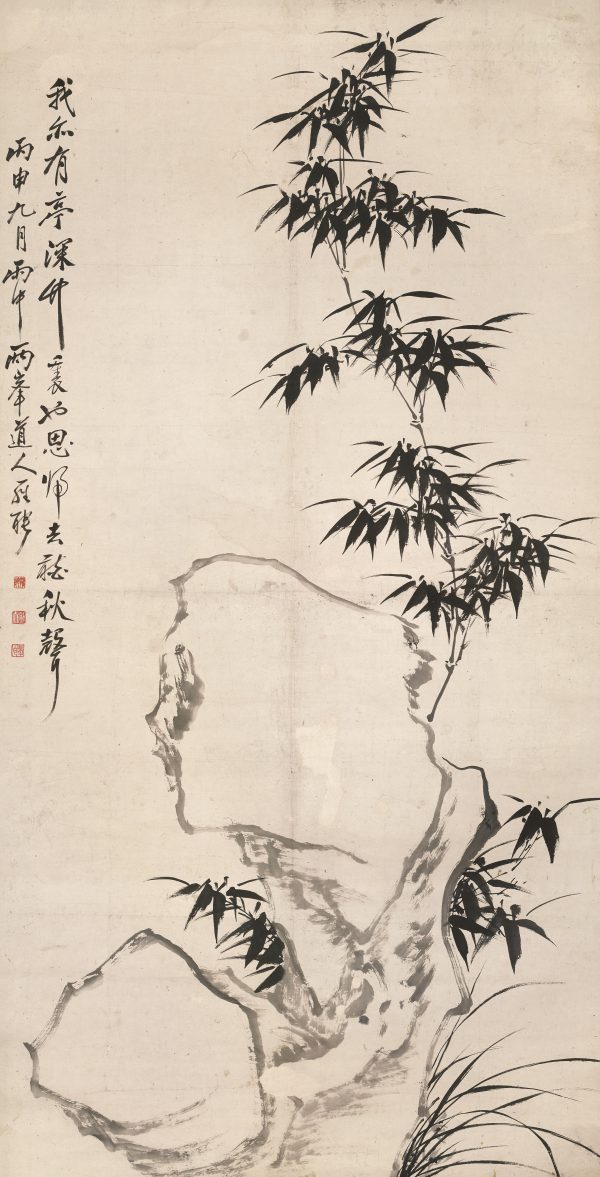 我亦有亭深竹裏也思歸去聽秋聲
丙申九月雨中兩峯道人羅聘